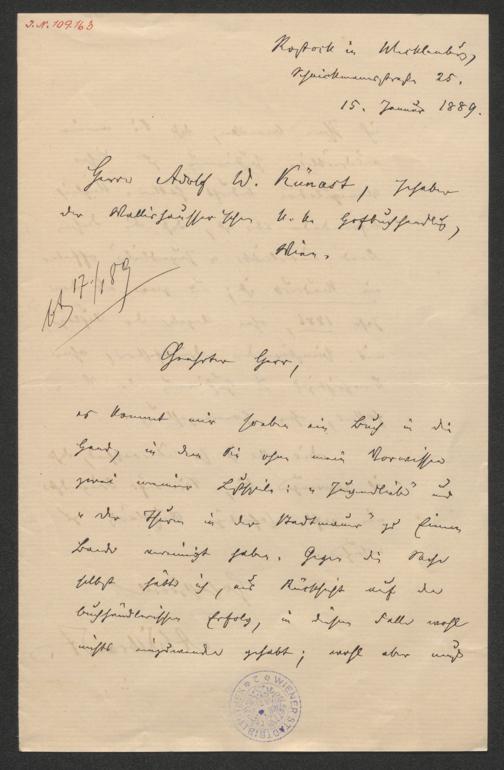 J. N. 109.163
Rostock in Mecklenburg,
25.
15. Januar 1889.
Herrn Adolf W. Künast, Inhaber
der Wallishausser'schen k. k. Hofbuchhandlg,
Wien.
17./1 89
Geehrter Herr,
es kommt mir soeben ein Buch in die
Hand, in dem Sie ohne mein Vorwissen
zwei meiner Lustspiele: „Jugendliebe" und
„der Thurm in der Stadtmauer" zu Einem
Bande vereinigt haben. Gegen die Sache
selbst hätte ich, aus Rücksicht auf den
buchhändlerischen Erfolg, in diesem Falle wohl
nichts einzuwenden gehabt; wohl aber muß
WIENER STADTBIBLIOTHEK